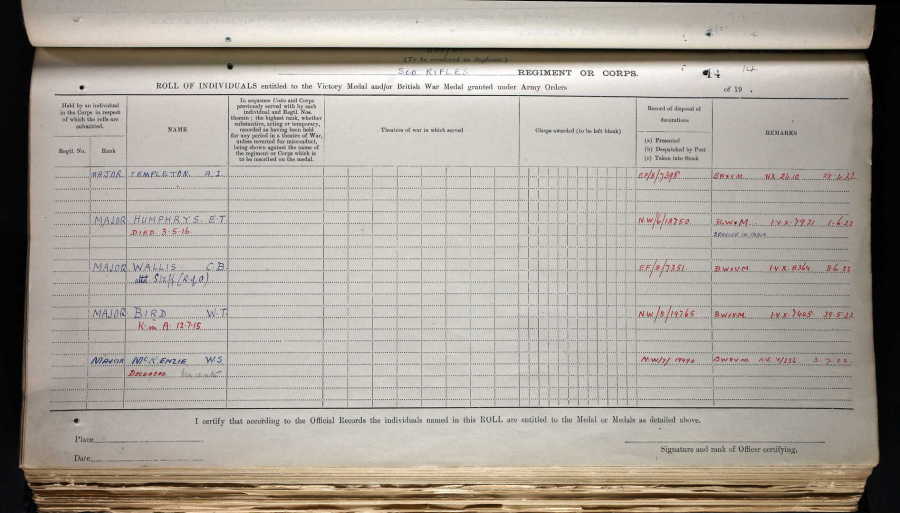 (To be rendered in duplicate.)
Sco RIFLES REGIMENT OR CORPS. 14 14
ROLL OF INDIVIDUALS entitled to the Victory Medal and/or British War Medal granted under Army Orders of 19 .
Held by an individual in the Corps in respect of which the rolls are submitted.
Regtl. No.
Rank
NAME
In sequence Units and Corps previously served with by each individual and Regtl. Nos. therein; the highest rank, whether substantive, acting or temporary, recorded as having been held for any period in a theatre of War, unless reverted for misconduct, being shown against the name of the regiment or Corps which is to be inscribed on the medal.
Theatres of war in which served
Clasps awarded (to be left blank)
Record of disposal of decorations
(a) Presented
(b) Despatched by Post
(c) Taken into Stock
REMARKS
MAJOR TEMPLETON. A.I. EF/8/7398 BWVM. IVX 2610
MAJOR HUMPHRYS E.T. NW/6/18750 BWVM. IVX 7921 1.6.22
DIED 3-5-16
MAJOR WALLIS C.B. EF/8/7351 BWVM IVX 8364 8.6.22
attd (R of O)
MAJOR BIRD W.T. NW/8/19765 BWVM IVX 7405 29-5-22
K in A 12-7-15
MAJOR McKENZIE W.S BWVM
DECEASED
I certify that according to the Official Records the individuals named in this ROLL are entitled to the Medal or Medals as detailed above.
Place
Date
Signature and rank of Officer certifying.